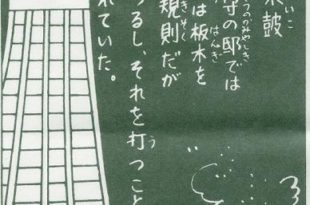 鼓
守の邸では
は板木を
規則だが
つるし、それを打つこと
れていた。